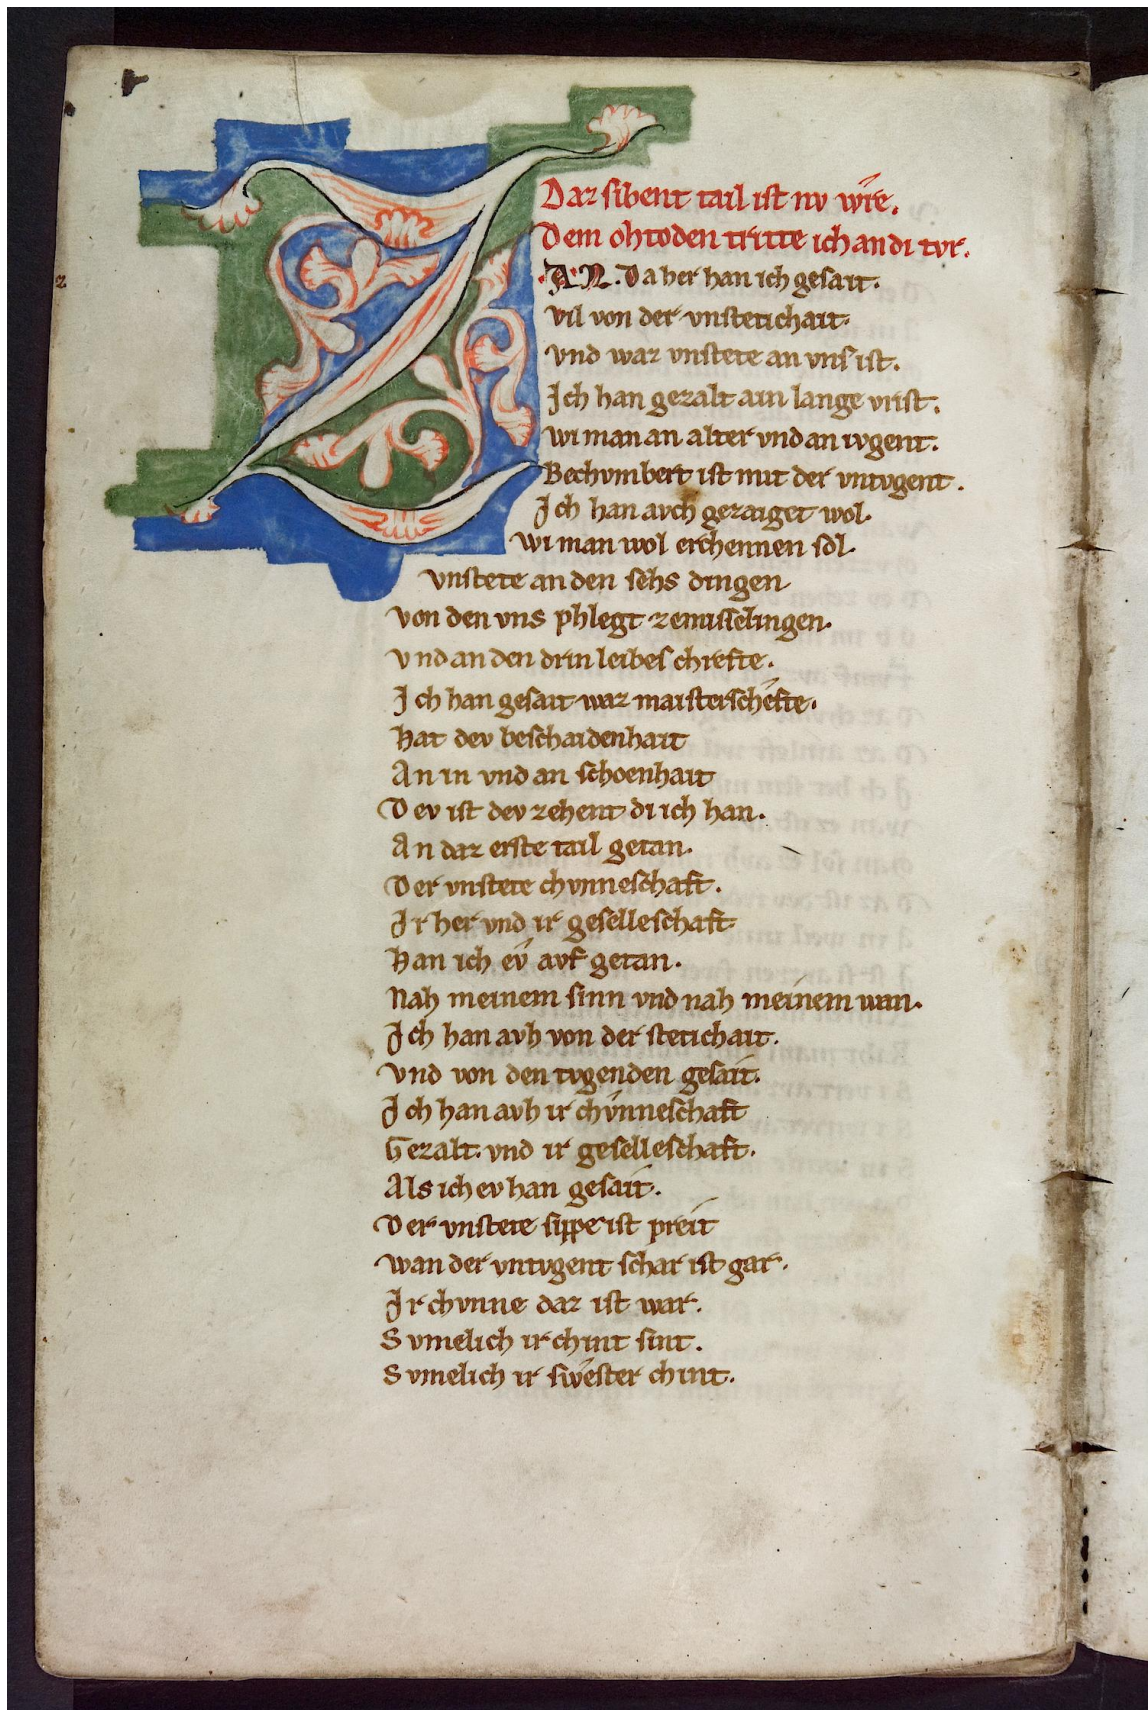 Daz sibent tail ist nv wie.
Dem ohtoden tritte ich an di tvr.
Z AN. Da her han ich gesait.
vil von der vnstetichait.
vnd waz vnstete an vns ist.
Ich han gezalt ain lange vrist.
wi man an alter vnd an ivgent.
Bechvmbert ist mit der vntvgent.
Ich han avch gezaiget wol.
wi man wol erchennen sol.
vnstete an den sehs dingen
von den vns phlegt ze misselingen.
vnd an den drin leibes chrefte.
Ich han gesait waz maisterschefte.
Hat dev beschaidenhait
An in vnd an schoenhait
Dev ist dev zehent di ich han.
An daz erste tail getan.
Der vnstete chvnneschaft.
Ir her vnd ir geselleschaft
Han ich ev avf getan.
Nah meinem sinn vnd nah meinem wan.
Ich han avh von der stetichait.
vnd von den tvgenden gesait.
Ich han avh ir chvnneschaft
Gezalt. vnd ir geselleschaft.
Als ich ev han gesait.
Der vnstete sippe ist preit
wan der vntvgent schar ist gar.
Ir chvnne daz ist war.
Svmelich ir chint sint.
Svmelich ir swester chint.